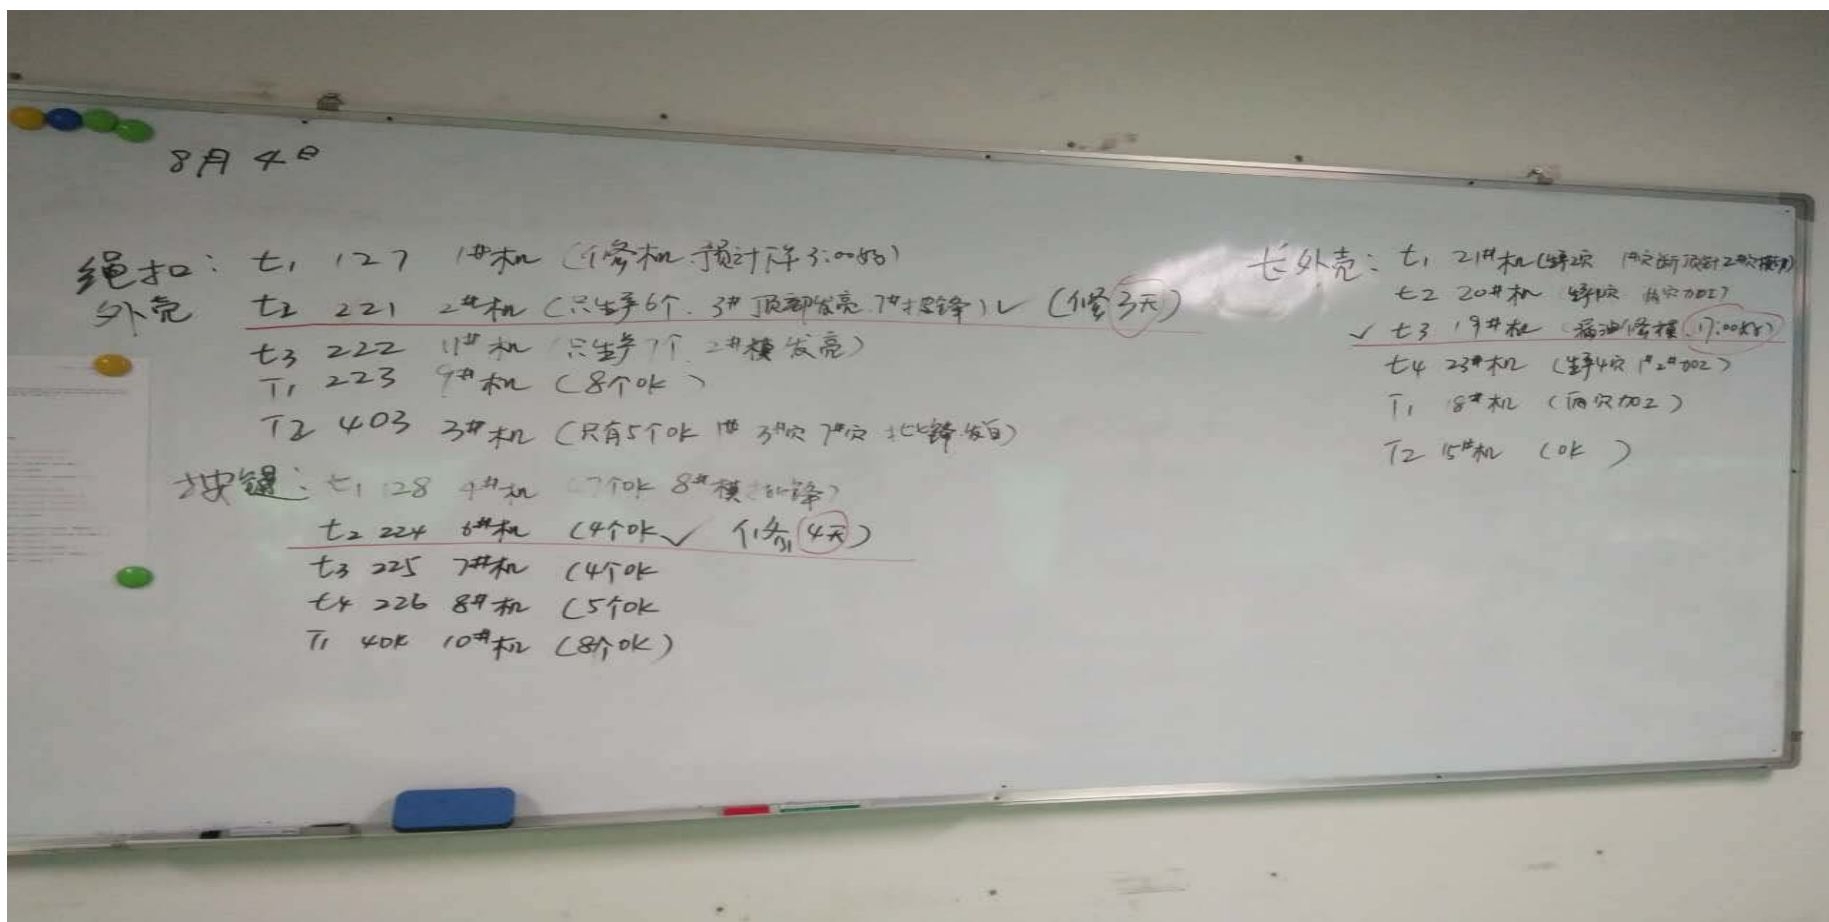 8月4日
绳扣: t1 127 1#机 (修机.预计下午3:00好)
外壳 t2 221 2#机 (只生产6个. 3#顶部发亮.7#披锋)✓ (修3天)
t3 222 11#机 (只生产7个 2#模发亮)
T1 223 9#机 (8个ok)
T2 403 3#机 (只有5个ok 1# 3#穴 7#穴 披锋.发白)
按键: t1 128 4#机 (7个ok 8#模披锋)
t2 224 6#机 (4个ok✓ 修4天)
t3 225 7#机 (4个ok
t4 226 8#机 (5个ok
T1 10#机 (8个ok)
长外壳: t1 21#机 (生产2穴 1#穴断顶针2#穴
t2 20#机
✓ t3 19#机 (漏油修模.17:00好)
t4 23#机 (生产4穴 1#2#
T1 18#机 (两穴
T2 15#机 (ok)